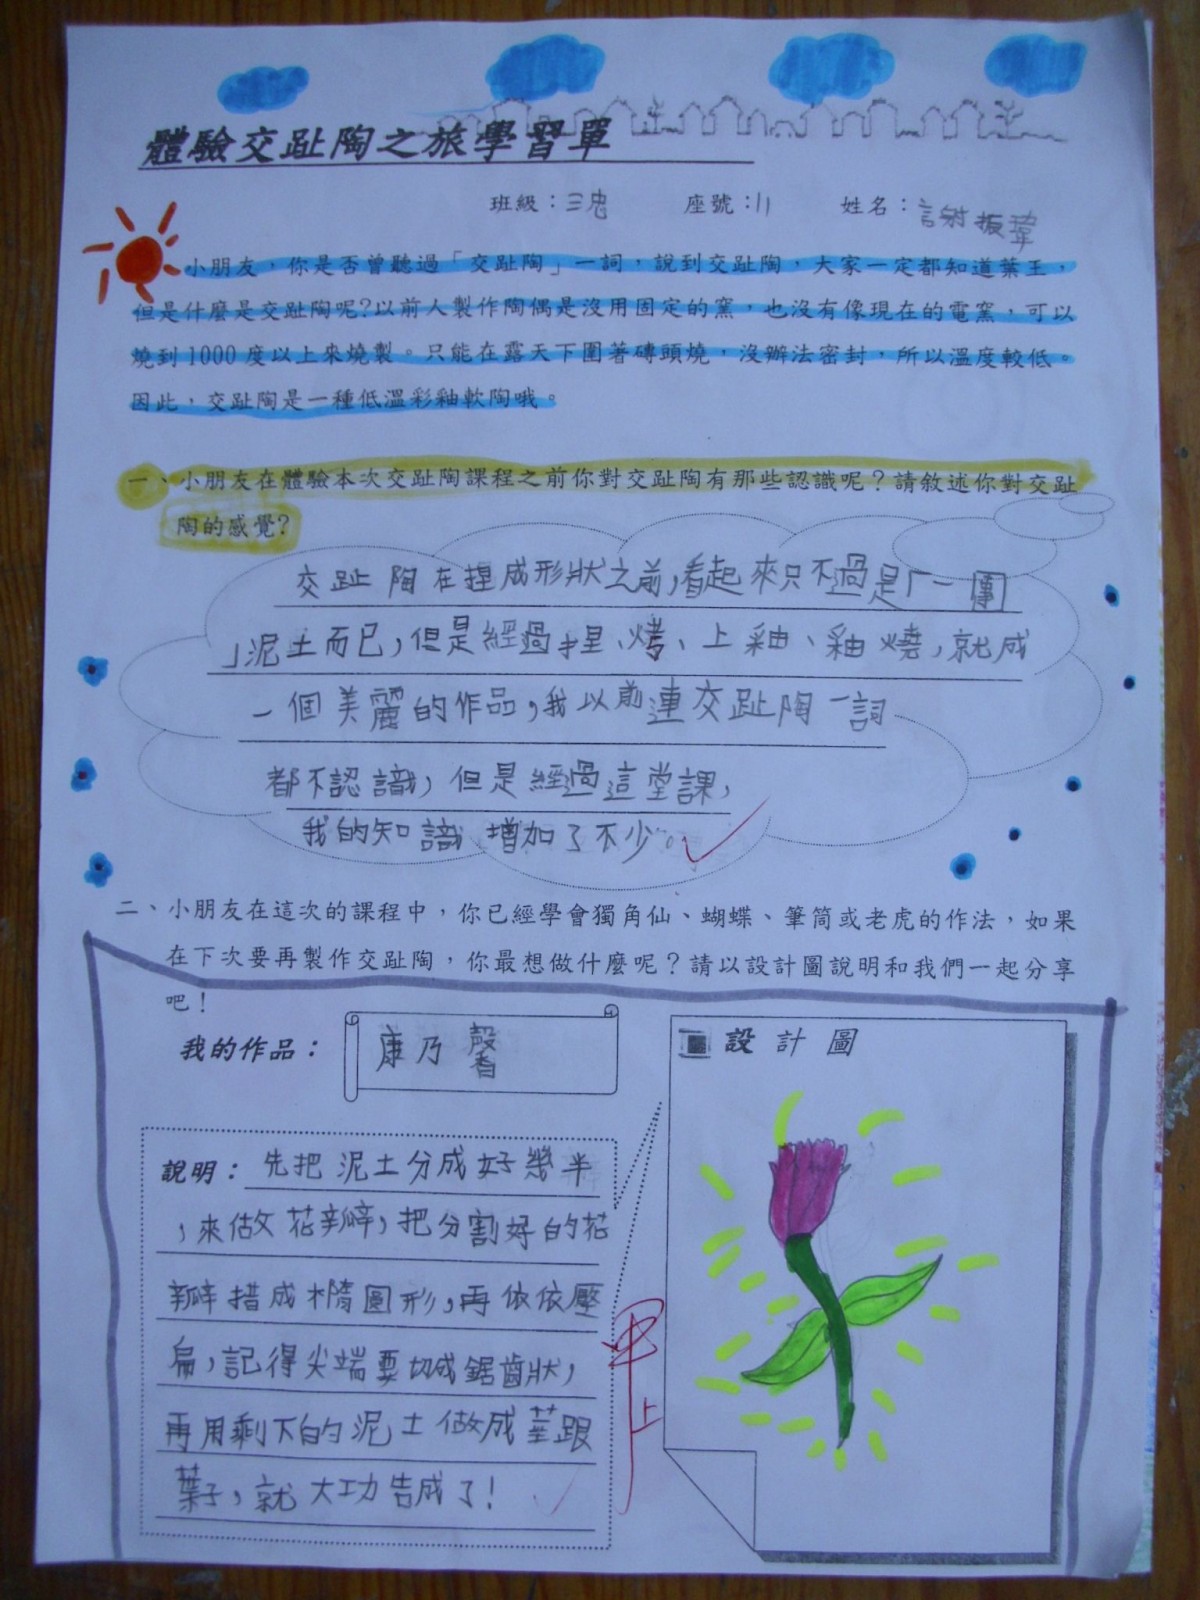 體驗交趾陶之旅學習單
班級：三忠 座號：11 姓名：謝振瑋
小朋友，你是否曾聽過「交趾陶」一詞，說到交趾陶，大家一定都知道葉王，
但是什麼是交趾陶呢?以前人製作陶偶是沒用固定的窯，也沒有像現在的電窯，可以
燒到1000度以上來燒製。只能在露天下圍著磚頭燒，沒辦法密封，所以溫度較低。
因此，交趾陶是一種低溫彩釉軟陶哦。
一、小朋友在體驗本次交趾陶課程之前你對交趾陶有那些認識呢？請敘述你對交趾
陶的感覺?
交趾陶在捏成形狀之前，看起來只不過是「一團
」泥土而已，但是經過捏、烤、上釉、釉燒，就成
一個美麗的作品，我以前連交趾陶一詞
都不認識，但是經過這堂課，
我的知識增加了不少。
二、小朋友在這次的課程中，你已經學會獨角仙、蝴蝶、筆筒或老虎的作法，如果
在下次要再製作交趾陶，你最想做什麼呢？請以設計圖說明和我們一起分享
吧！
我的作品：康乃馨
設計圖
說明：先把泥土分成好幾半
，來做花瓣，把分割好的花
瓣措成橢圓形，再依依壓
扁，記得尖端要切成鋸齒狀，
再用剩下的泥土做成莖跟
葉子，就大功告成了！
甲上